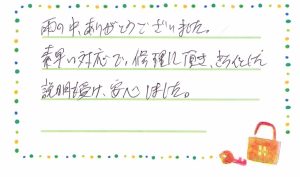 雨の中、ありがとうございました。
素早い対応で、修理して頂き、きちんとした
説明も受け、安心しました。